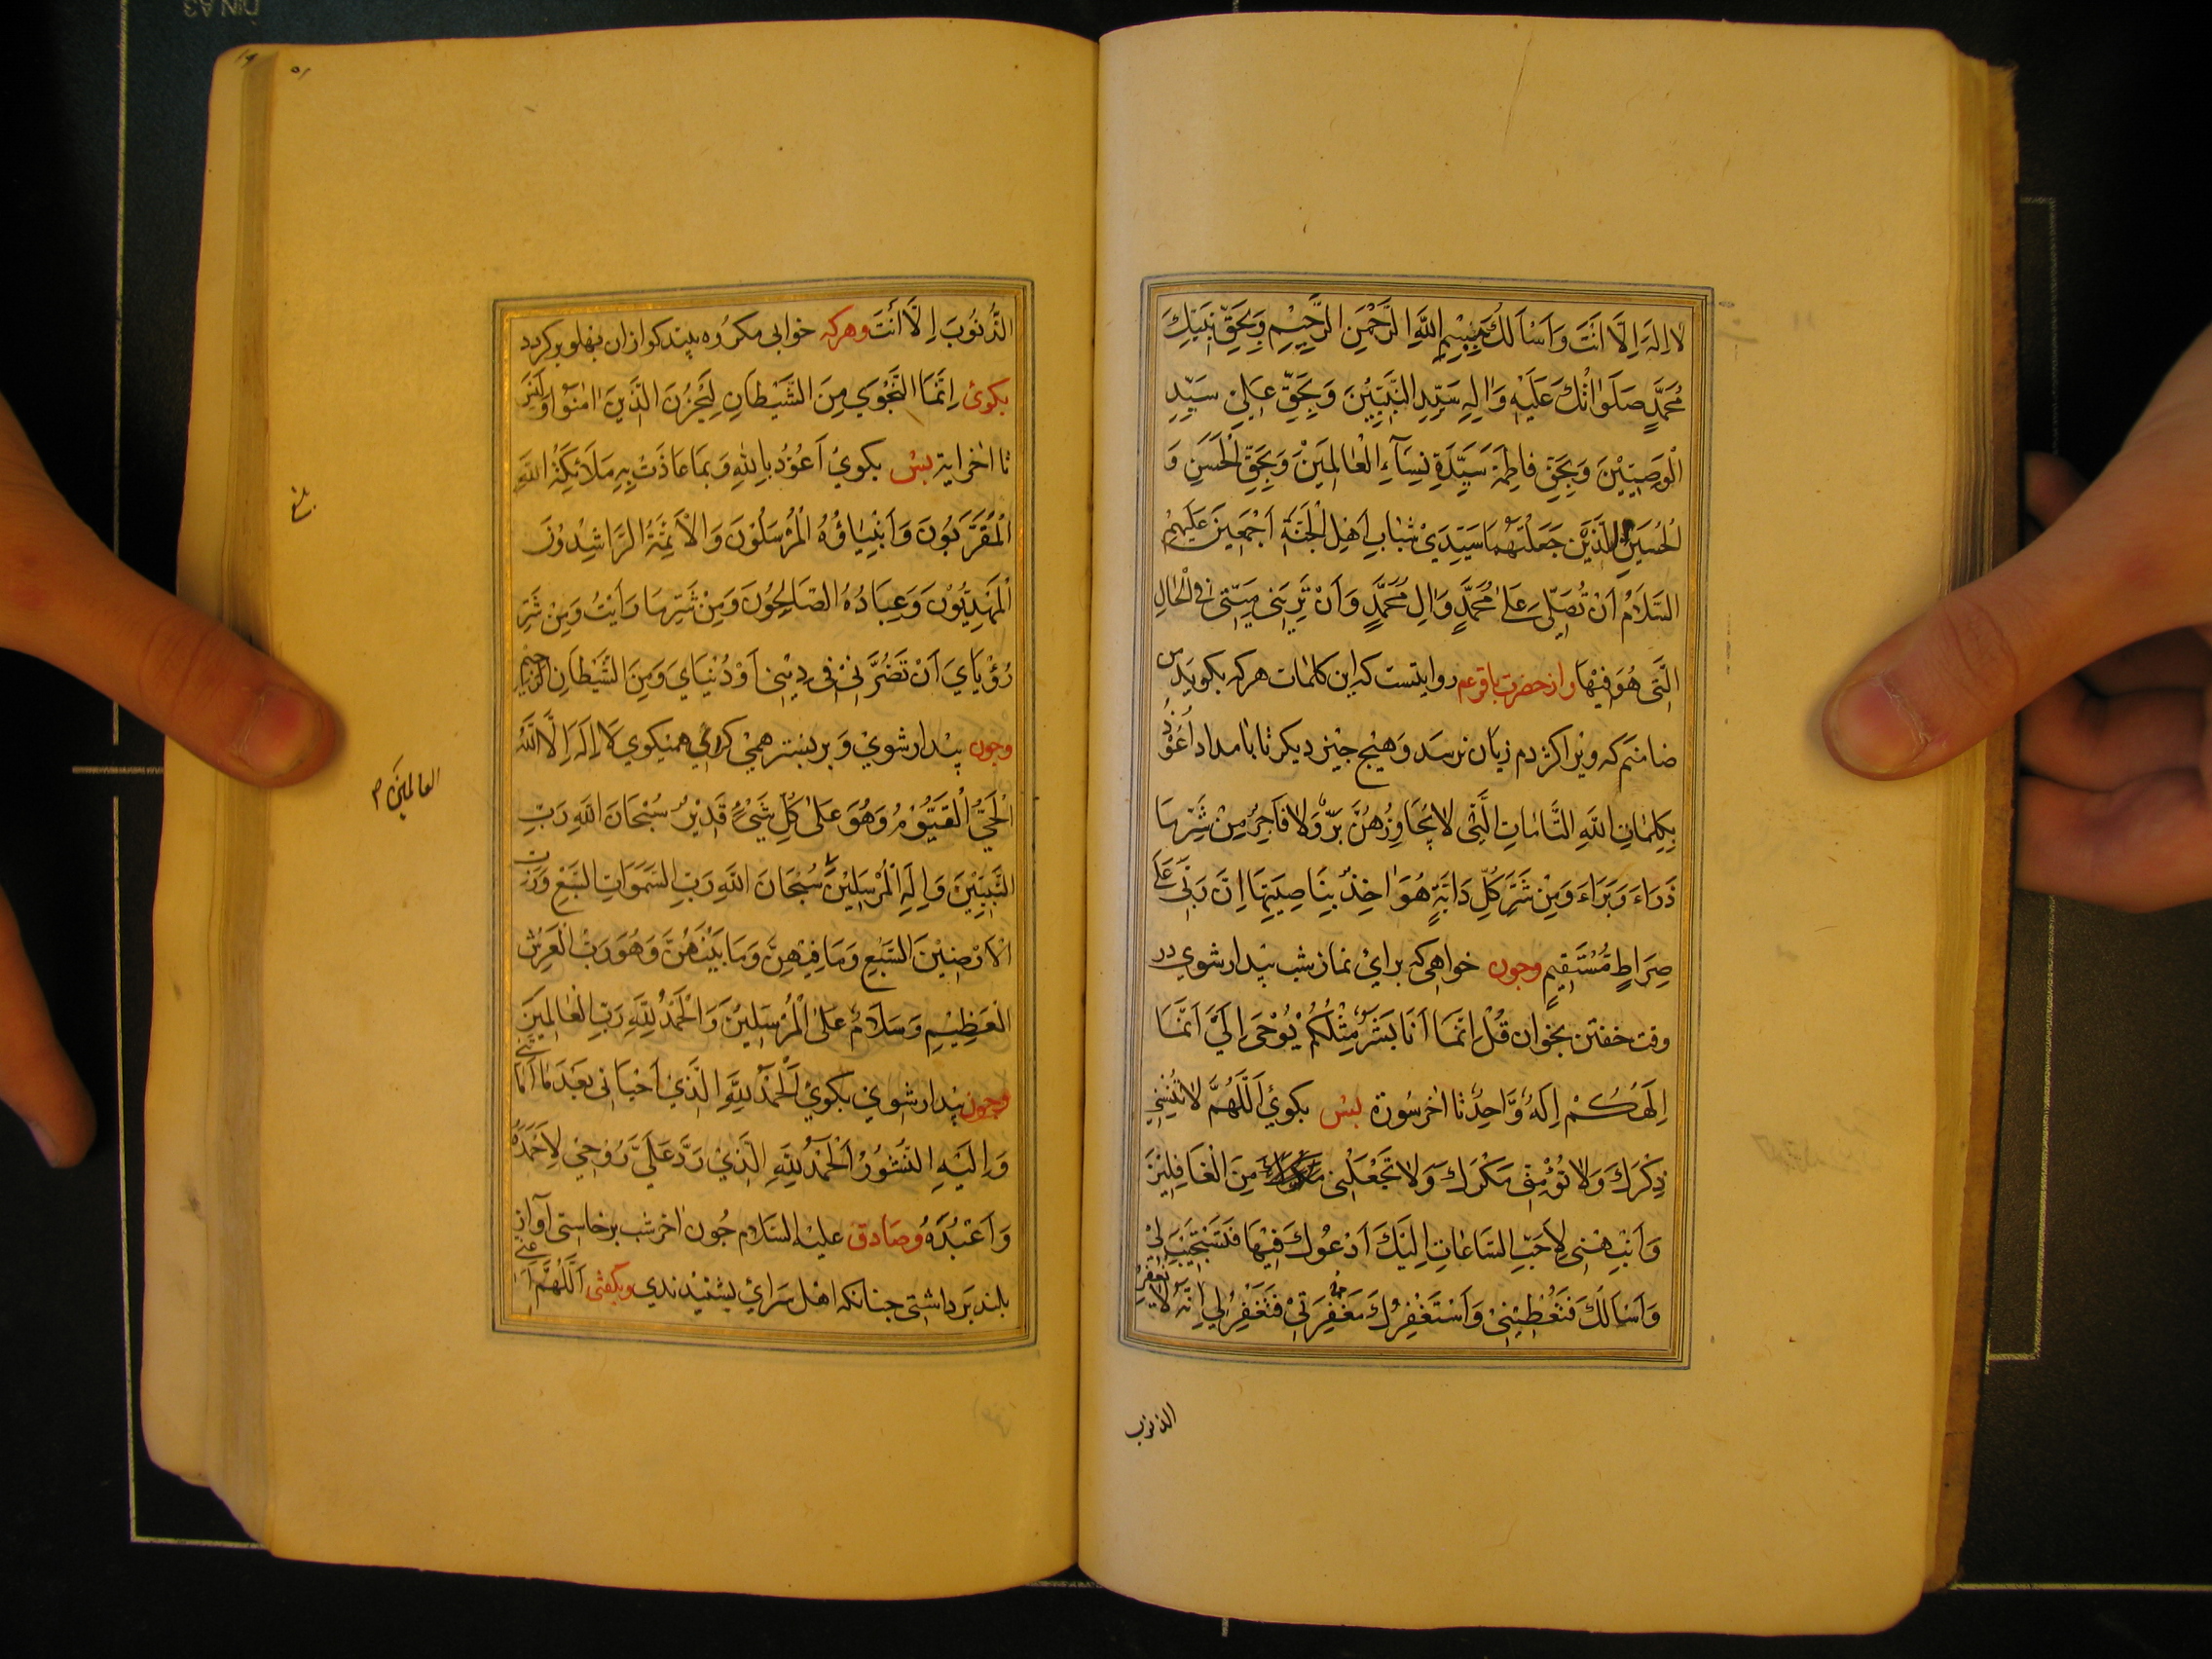 لا اِلهَ اِلَّا اَنْتَ وَاَسْاَلُكَ بِبِسْمِ اللهِ الرَّحْمنِ الرَّحِيْمِ وَبِحَقِّ نَبِيِّكَ
مُحَمَّدٍ صَلَوٰاتُكَ عَلَيْهِ وَالِهِ سَيِّدِ النَّبِيِّيْنَ وَبِحَقِّ عَلِيٍّ سَيِّدِ
الْوَصِيِّيْنَ وَبِحَقِّ فاطِمَةَ سَيِّدَةِ نِسَآءِ الْعٰالَمِيْنَ وَبِحَقِّ الْحَسَنِ وَ
الْحُسَيْنِ الَّذَيْنِ جَعَلْتَهُمَا سَيِّدَيْ شَبٰابِ اَهْلِ الْجَنَّةِ اَجْمَعِيْنَ عَلَيْهِمُ
السَّلَامُ اَنْ تُصَلِّىَ عَلىٰ مُحَمَّدٍ وَالِ مُحَمَّدٍ وَاَنْ تُرِيَنى مَيِّتى فِى الْحٰالِ
الَّتى هُوَ فيْهَا واز حضرت باقر عم روايتست كه اين كلمات هر كه بكويد من
ضامنم كه ويرا كژدم زيان نرسد وهيج جيز ديكر تا بامداد اَعُوْذُ
بِكَلِمٰاتِ اللهِ التَّامّٰاتِ الَّتى لا يُجَاوِزُهُنَّ بَرٌّ وَلا فَاجِرٌ مِنْ شَرِّ مَا
ذَرَاءَ وَبَرَاءَ وَمِنْ شَرِّ كُلِّ دَابَّةٍ هُوَ اٰخِذٌ بِنَاصِيَتِهَا اِنَّ رَبّى عَلىٰ
صِرَاطٍ مُسْتَقِيمٍ وجون خواهى كه براى نماز شب بيدار شوي در
وقت خفتن بخوان قُلْ اِنَّمَا اَنَا بَشَرٌ مِثْلُكُمْ يُوْحَى اِلَيَّ اَنَّمَا
اِلَهُكُمْ اِلَهٌ وَّاحِدٌ تا اخر سُورة بس بكوي اَللَّهُمَّ لا تُنْسِنى
ذِكْرَكَ وَلا تُؤْمِنّى مَكْرَكَ وَلا تَجْعَلْنى مِنَ الْغَافِلِيْنَ
وَاَنْبِهْنى لِاَحَبِّ السَّاعَاتِ اِلَيْكَ اَدْعُوكَ فيْهَا فَتَسْتَجِيْبَ لى
وَاَسْاَلُكَ فَتُعْطِيَنِىْ وَاَسْتَغْفِرُكَ فَتَغْفِرُ لي اِنَّهُ لا يَغْفِرُ
الذنوب
الذُّنُوْبَ اِلَّا اَنْتَ وهر كه خوابى مكروه بيند كو از ان بهلو بركردد
بكوى اِنَّمَا النَّجْوَي مِنَ الشَّيْطَانِ لِيَحْزُنَ الَّذِينَ اٰمَنُوْا وَلَيْسَ
تا اخر اية بس بكوي اَعُوْذُ بِاللهِ وَبِمَا عَاذَتْ بِهِ مَلَائِكَةُ اللهِ
الْمُقَرَّبُوْنَ وَاَنْبِيٰاؤُهُ الْمُرْسَلُوْنَ وَالْاَئِمَّةُ الرَّاشِدُوْنَ
الْمَهْدِيُّوْنَ وَعِبَادُهُ الصَّالِحُونَ وَمِنْ شَرِّ مَا رَاَيْتُ وَمِنْ شَرِّ
رُؤْيَايَ اَنْ تَضُرَّنِى فى دِيْنى اَوْ دُنْيَايَ وَمِنَ الشَّيْطَانِ الرَّجيْمِ
وجون بيدار شوي وبر بستر همى كردي همى كوي لا اِلَهَ اِلَّا اللهُ
الْحَيُّ الْقَيُّوْمُ وَهُوَ عَلىٰ كُلِّ شَيْءٍ قَدِيْرٌ سُبْحَانَ اللهِ رَبِّ
العالمين م
النَّبِيِّيْنَ وَاِلَهِ الْمُرْسَلِيْنَ سُبْحَانَ اللهِ رَبِّ السَّمَوَاتِ السَّبْعِ وَرَبِّ
الْاَرَضِيْنَ السَّبْعِ وَمَا فِيْهِنَّ وَمَا بَيْنَهُنَّ وَهُوَ رَبُّ الْعَرْشِ
الْعَظِيْمِ وَسَلَامٌ عَلَى الْمُرْسَلِيْنَ وَالْحَمْدُ لِلّهِ رَبِّ الْعٰالَمِيْنَ
وجون بيدار شوي بكوي اَلْحَمْدُ لِلّهِ الَّذِيْ اَحْيَانى بَعْدَ مَا اَمَاتَنى
وَاِلَيْهِ النُّشُوْرُ اَلْحَمْدُ لِلّهِ الَّذِيْ رَدَّ عَلَيَّ رُوْحِى لِاَحْمَدَهُ
وَاَعْبُدَهُ وصادق عليه السلام جون اخر شب برخاستى آواز
بلند برداشتى جنانكه اهل سراي بشنيدندي وبكفتى اَللَّهُمَّ اَعِنّى